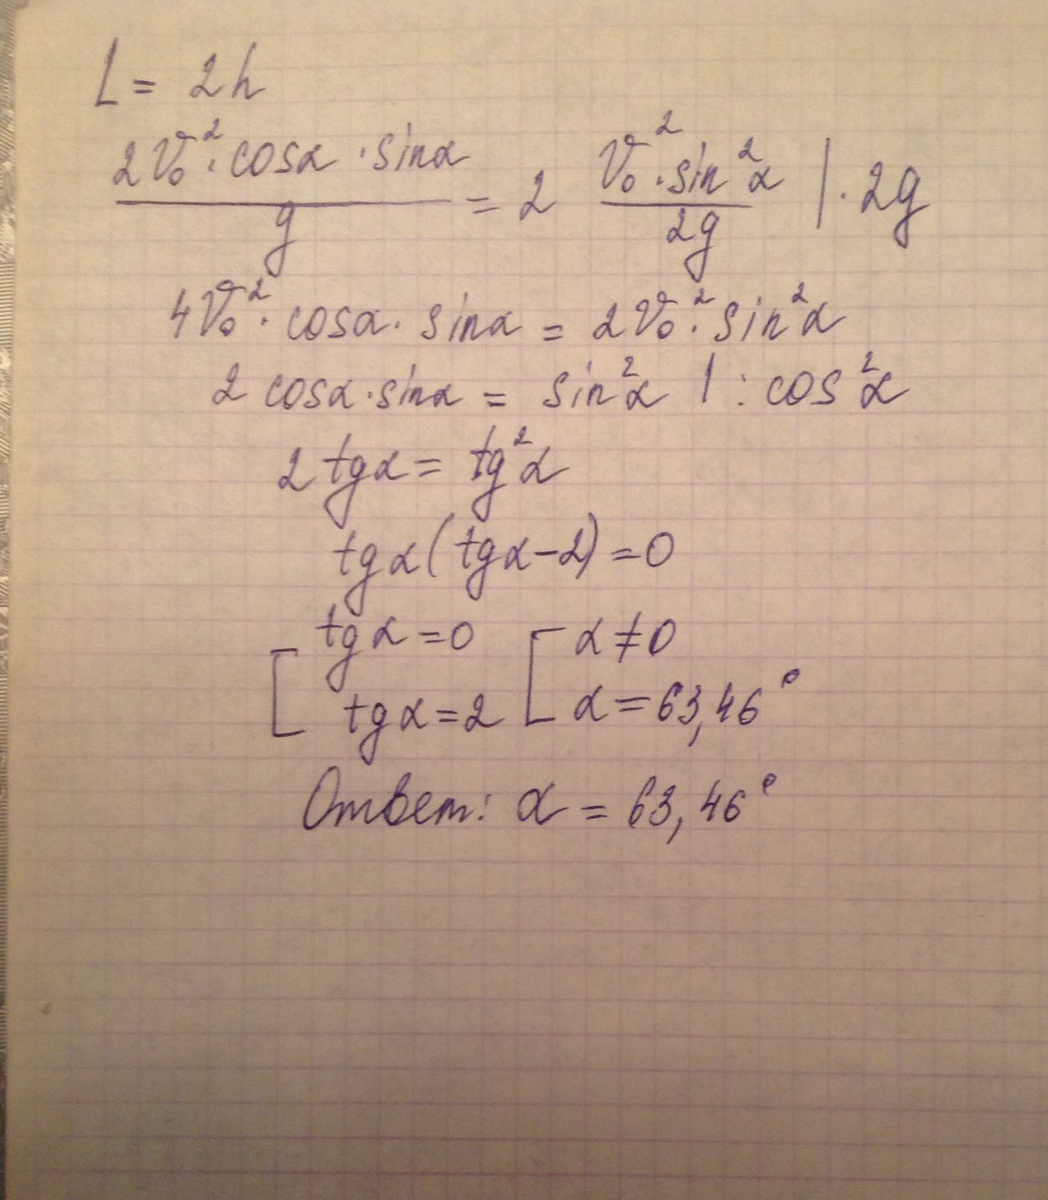 L = 2h
2V₀²·cosα·sinα / g = 2 V₀²·sin²α / 2g |·2g
4V₀²·cosα·sinα = 2V₀²·sin²α
2 cosα·sinα = sin²α | : cos²α
2 tgα = tg²α
tgα(tgα-2)=0
[ tgα=0 [ α≠0
tgα=2 α=63,46°
Ответ: α = 63,46°